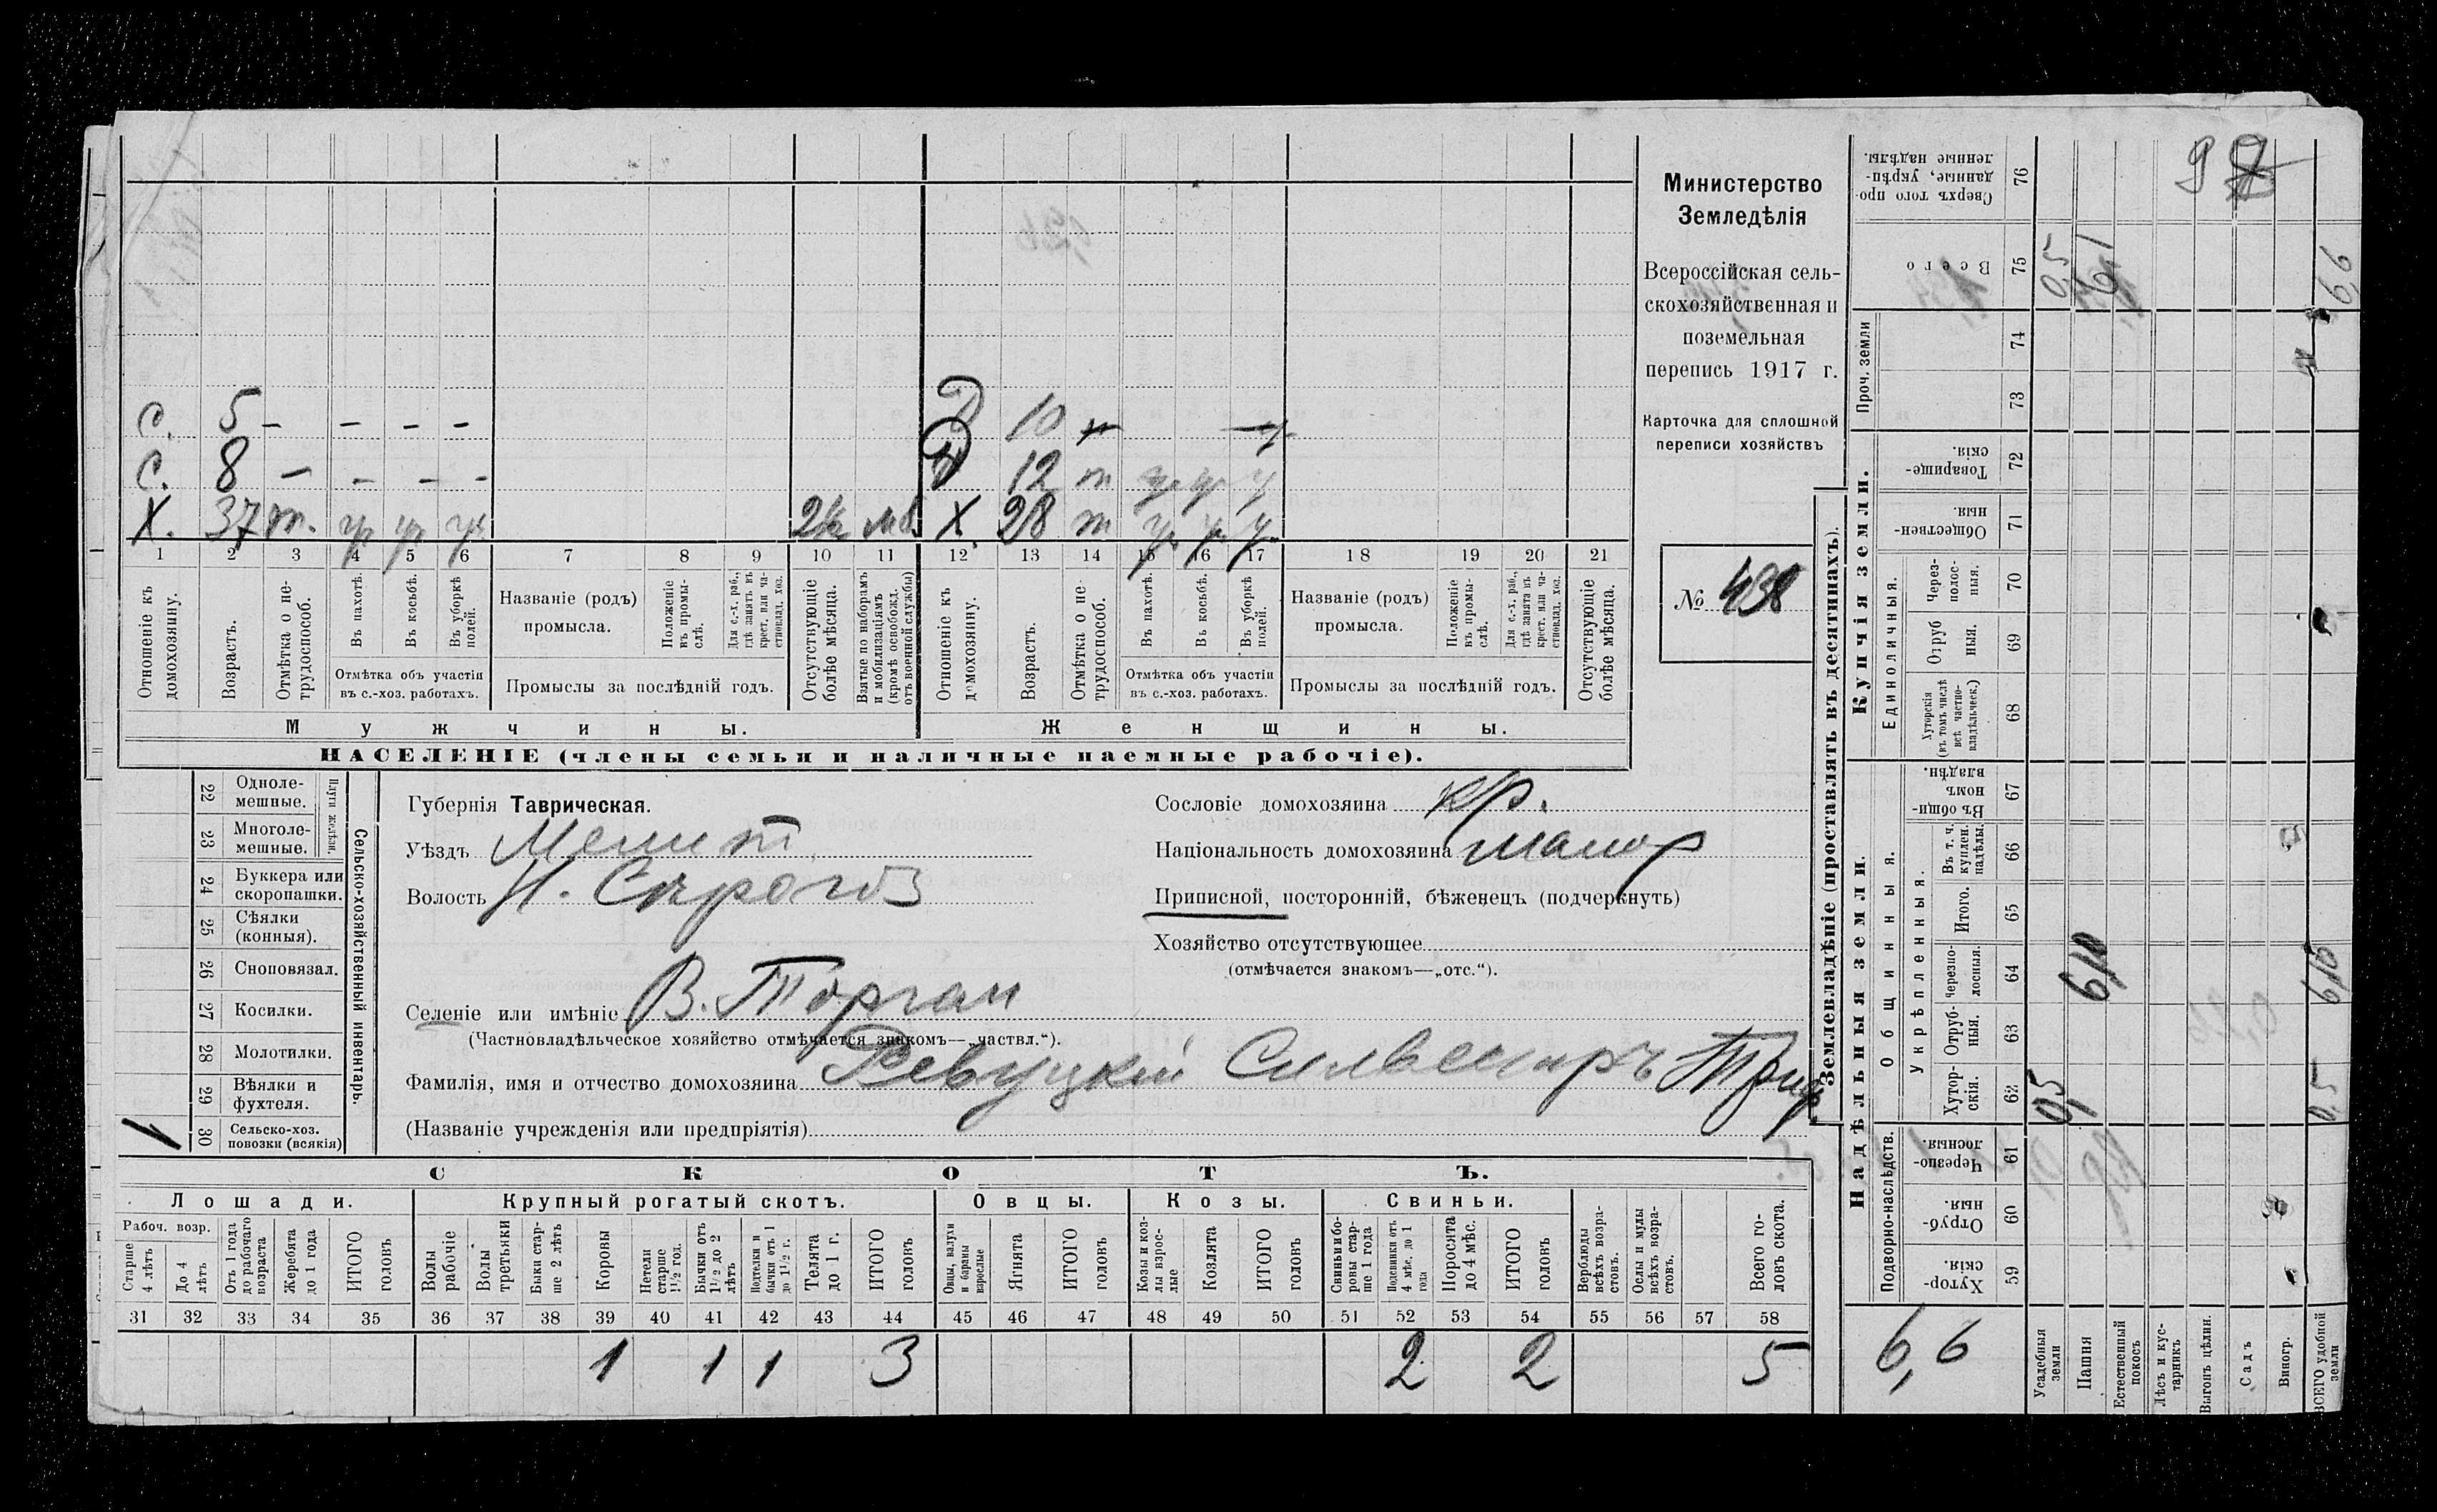 С. 5 – – – – Д 10 н
С. 8 – – – – Д 12 т ур ур у
Х. 37 т. ур ур ур 2½ мб. Х 28 т ур. ур. у.
1 2 3 4 5 6 7 8 9 10 11 12 13 14 15 16 17 18 19 20 21
Отношеніе къ домохозяину.
Возрастъ.
Отмѣтка о нетрудоспособ.
Въ пахотѣ.
Въ косьбѣ.
Въ уборкѣ полей.
Отмѣтка объ участіи въ с.-хоз. работахъ.
Названіе (родъ) промысла.
Положеніе въ промыслѣ.
Для с.-х. раб., гдѣ занятъ въ крест. или частновлад. хоз.
Промыслы за послѣдній годъ.
Отсутствующіе болѣе мѣсяца.
Взятые по наборамъ и мобилизаціямъ (кромѣ освобожд. отъ военной службы)
Отношеніе къ домохозяину.
Возрастъ.
Отмѣтка о нетрудоспособ.
Въ пахотѣ.
Въ косьбѣ.
Въ уборкѣ полей.
Отмѣтка объ участіи въ с.-хоз. работахъ.
Названіе (родъ) промысла.
Положеніе въ промыслѣ.
Для с.-х. раб., гдѣ занята въ крест. или частновлад. хоз.
Промыслы за послѣдній годъ.
Отсутствующіе болѣе мѣсяца.
Мужчины.
Женщины.
НАСЕЛЕНІЕ (члены семьи и наличные наемные рабочіе).
Министерство
Земледѣлія
Всероссійская сель-
скохозяйственная и
поземельная
перепись 1917 г.
Карточка для сплошной
переписи хозяйствъ
№ 438
22 Одноле-
мешные.
23 Многоле-
мешные.
Плуги желѣзн.
24 Буккера или
скоропашки.
25 Сѣялки
(конныя).
26 Сноповязал.
27 Косилки.
28 Молотилки.
29 Вѣялки и
фухтеля.
1 30 Сельско-хоз.
повозки (всякія)
Сельско-хозяйственный инвентарь.
Губернія Таврическая.
Уѣздъ Мелит.
Волость Н. Сѣрогоз
Селеніе или имѣніе В. Торгаи
(Частновладѣльческое хозяйство отмѣчается знакомъ—„частвл.“).
Фамилія, имя и отчество домохозяина Ревуцкій Сильвестръ
(Названіе учрежденія или предпріятія)
Сословіе домохозяина кр.
Національность домохозяина малор
Приписной, посторонній, бѣженецъ (подчеркнуть)
Хозяйство отсутствующее
(отмѣчается знакомъ—„отс.“).
СКОТЪ.
Лошади. Крупный рогатый скотъ. Овцы. Козы. Свиньи.
Рабоч. возр.
Старше 4 лѣтъ
До 4 лѣтъ
Отъ 1 года до рабочаго возраста
Жеребята до 1 года
ИТОГО головъ
Волы рабочіе
Волы третьяки
Быки старше 2 лѣтъ
Коровы
Нетели старше 1½ год.
Бычки отъ 1½ до 2 лѣтъ
Подтелки и бычки отъ 1 до 1½ г.
Телята до 1 г.
ИТОГО головъ
Овцы, валухи и бараны взрослые
Ягнята
ИТОГО головъ
Козы и козлы взрослые
Козлята
ИТОГО головъ
Свиньи и боровы старше 1 года
Подсвинки отъ 4 мѣс. до 1 года
Поросята до 4 мѣс.
ИТОГО головъ
Верблюды всѣхъ возрастовъ.
Ослы и мулы всѣхъ возрастовъ.
Всего головъ скота.
31 32 33 34 35 36 37 38 39 40 41 42 43 44 45 46 47 48 49 50 51 52 53 54 55 56 57 58
1 1 1 3 2 2 5
Землевладѣніе (проставлять въ десятинахъ).
Надѣльныя земли.
Купчія земли.
Проч. земли
Подворно-наслѣдств.
Общинныя.
Укрѣпленныя.
Единоличныя.
Сверхъ того проданные, укрѣпленные надѣлы. 76
Всего 75 0,5 6,1 6,6
74
73
Товарищескія. 72
Общественныя. 71
Черезполосныя. 70
Отрубныя. 69
Хуторскія (въ томъ числѣ всѣ частновладѣльческ.) 68
Въ общинномъ владѣн. 67
Въ т. ч. куплен. надѣлы. 66
Итого. 65
Черезполосныя. 64 6,10 6,10
Отрубныя. 63
Хуторскія. 62 0,5 0,5
Черезполосныя. 61
Отрубныя. 60
Хуторскія. 59
6,6
Усадебныя земли
Пашня
Естественный покосъ
Лѣсъ и кустарникъ
Выгонъ цѣлин.
Садъ
Виногр.
ВСЕГО удобной земли
9